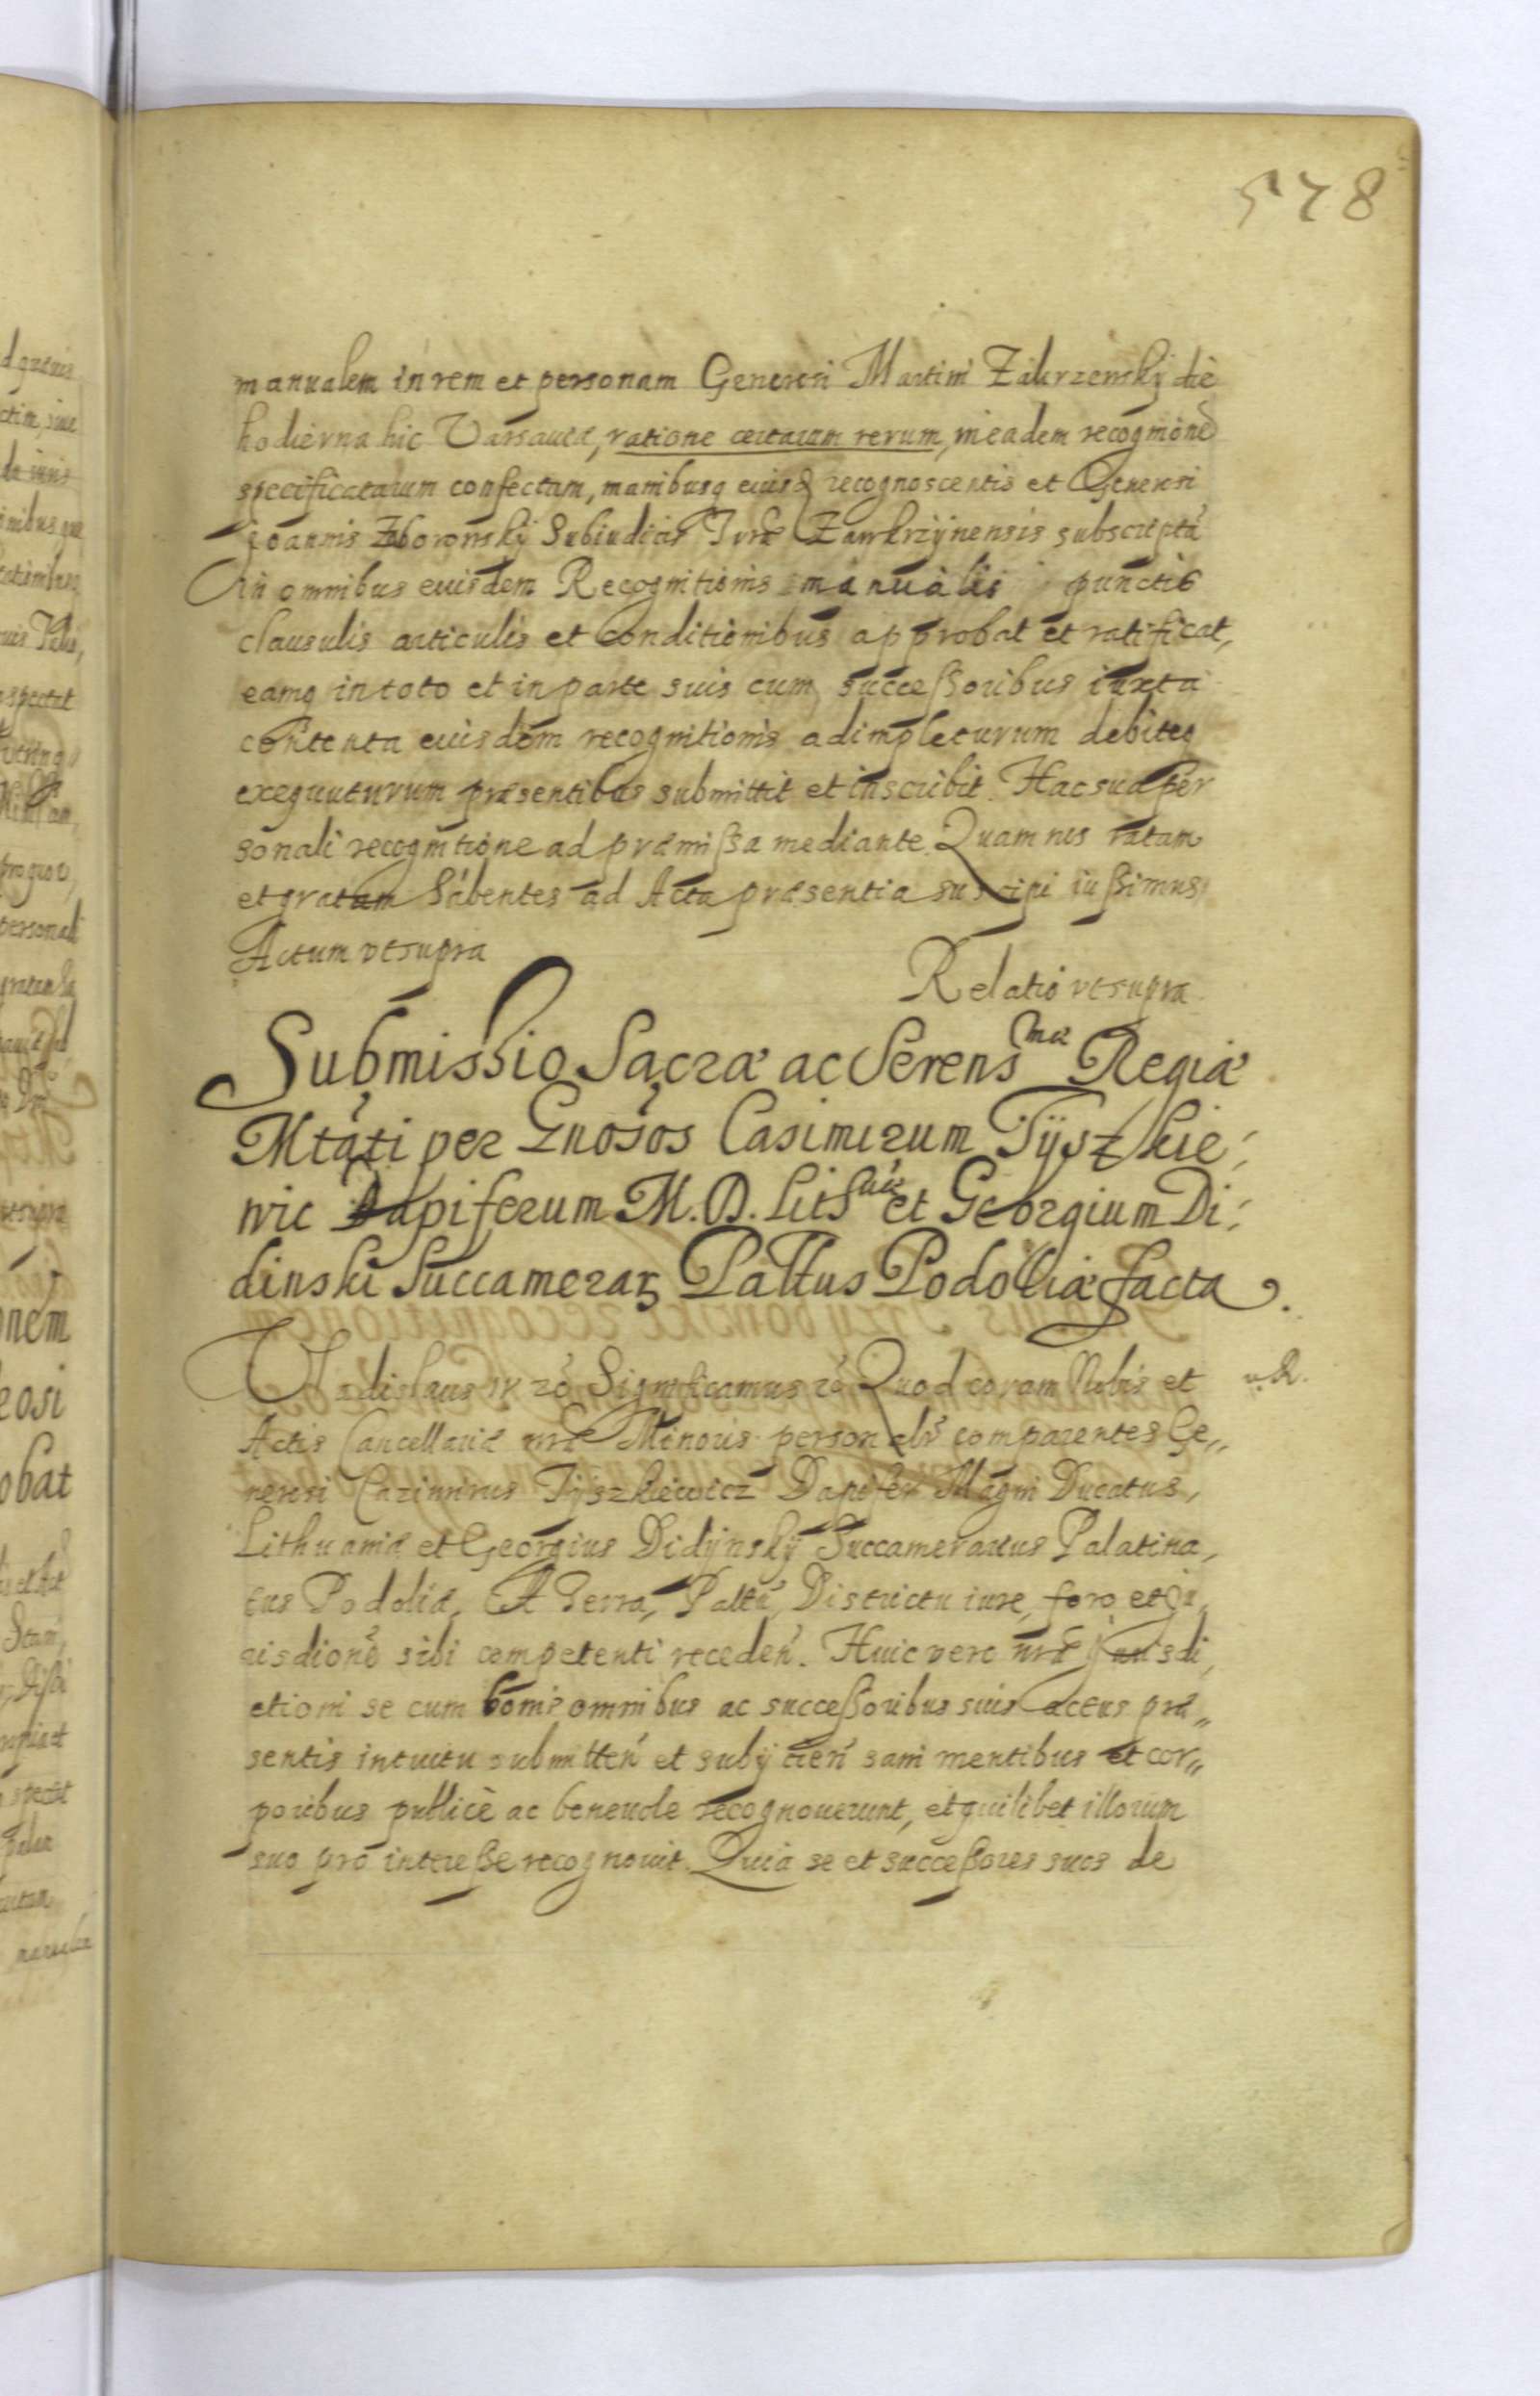 578
manualem in rem et personam Generosi Martini Zakrzewskÿ die
hodierna hic Varsaviæ, ratione certarum rerum, in eadem recogniõne
specificatarum confectam, manibusq eiusd recognoscentis et Generosi
Joannis Zborowskÿ Subiudicis Trræ Zawkrzÿnensis subscriptã
in omnibus eiusdem Recognitionis manualis punctis
clausulis articulis et conditionibus approbat et ratificat,
eamq in toto et in parte suis cum successoribus iuxta
contenta eiusdem recognitionis adimpleturum debiteq
exequuturum præsentibus submittit et inscribit. Hac sua per
sonali recognitione ad præmissa mediante. Quam nos ratam
et gratam habentes ad Acta præsentia suscipi iussimus
Actum vt supra
Relatio vt supra
Submissio Sacræ ac Serensmæ Regiæ
Mtãti per Gnosos Casimirum Tÿszkie:
wic Dapiferum M. D. Lithuæ et Georgium Di:
dinski Succamerar Palttus Podoliæ facta.
Vladislaus IV zõ Significamus zõ Quod coram Nobis et
u. R.
Actis Cancellariæ nræ Minoris personalr comparentes Ge„
nerosi Cazimirus Tÿszkiewicz Dapifer Magni Ducatus,
Lithuaniæ et Georgius Didÿnskÿ Succamerarius Palatina,
tus Podoliæ. A Terra, Paltu, Districtu iure, foro et Ju,
risdione sibi competenti receden. Huic vero nræ Jurisdi,
ctioni se cum bonis omnibus ac successoribus suis actus præ„
sentis intuitu submitten et subÿcien sani mentibus et cor„
poribus publice ac benevole recognouerunt, et quilibet illorum
suo pro interesse recognouit. Quia se et successores suos de